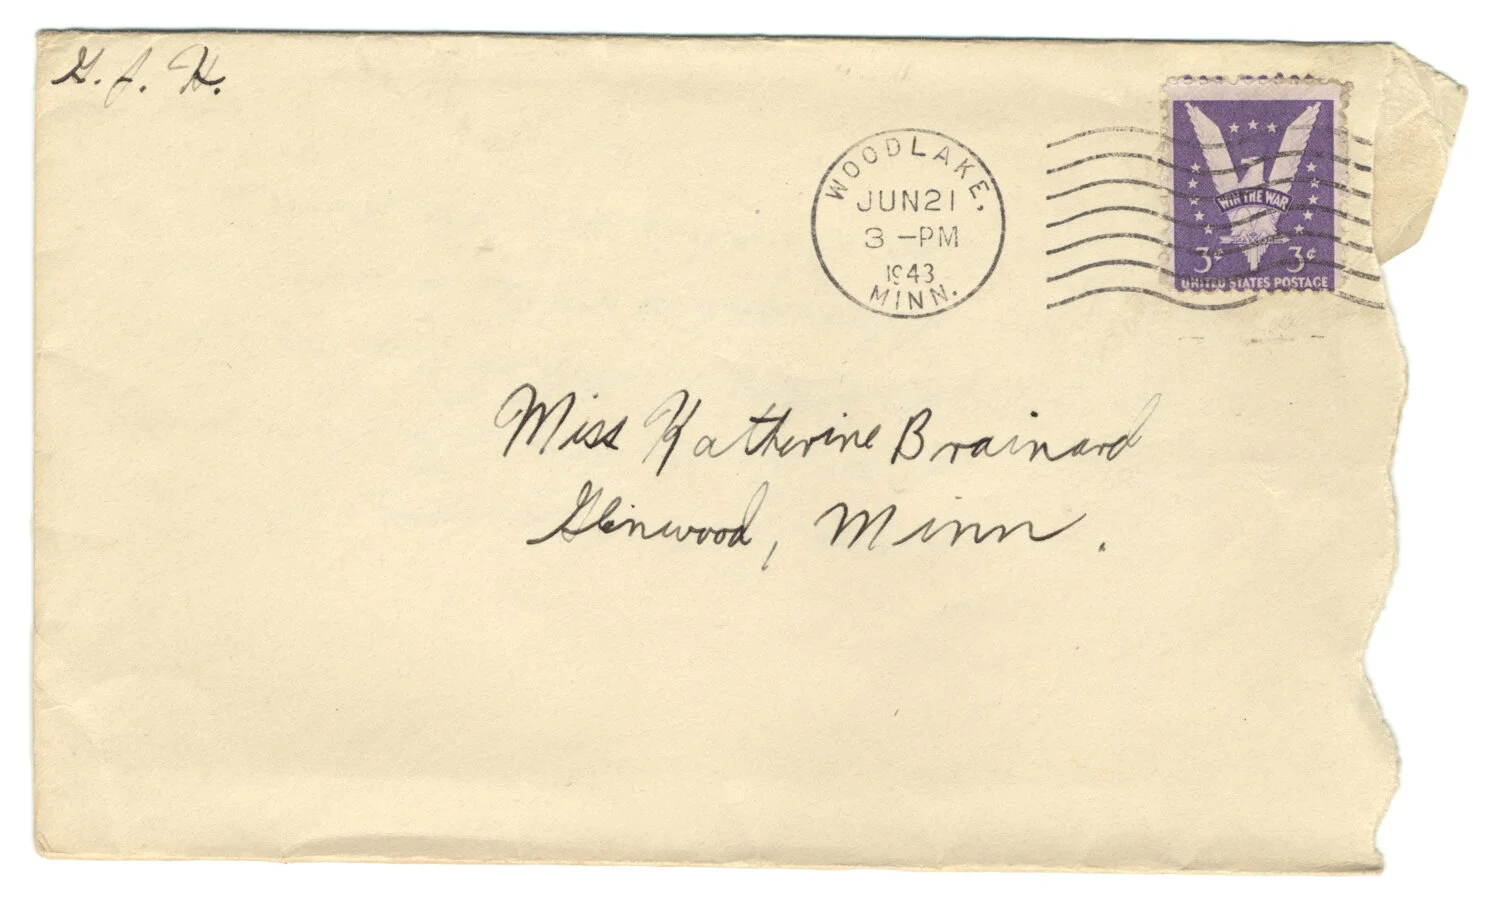 G. J. H.
WOODLAKE,
JUN 21
3 -PM
1943
MINN.
WIN THE WAR
3¢ 3¢
UNITED STATES POSTAGE
Miss Katherine Brainard
Glenwood, Minn.